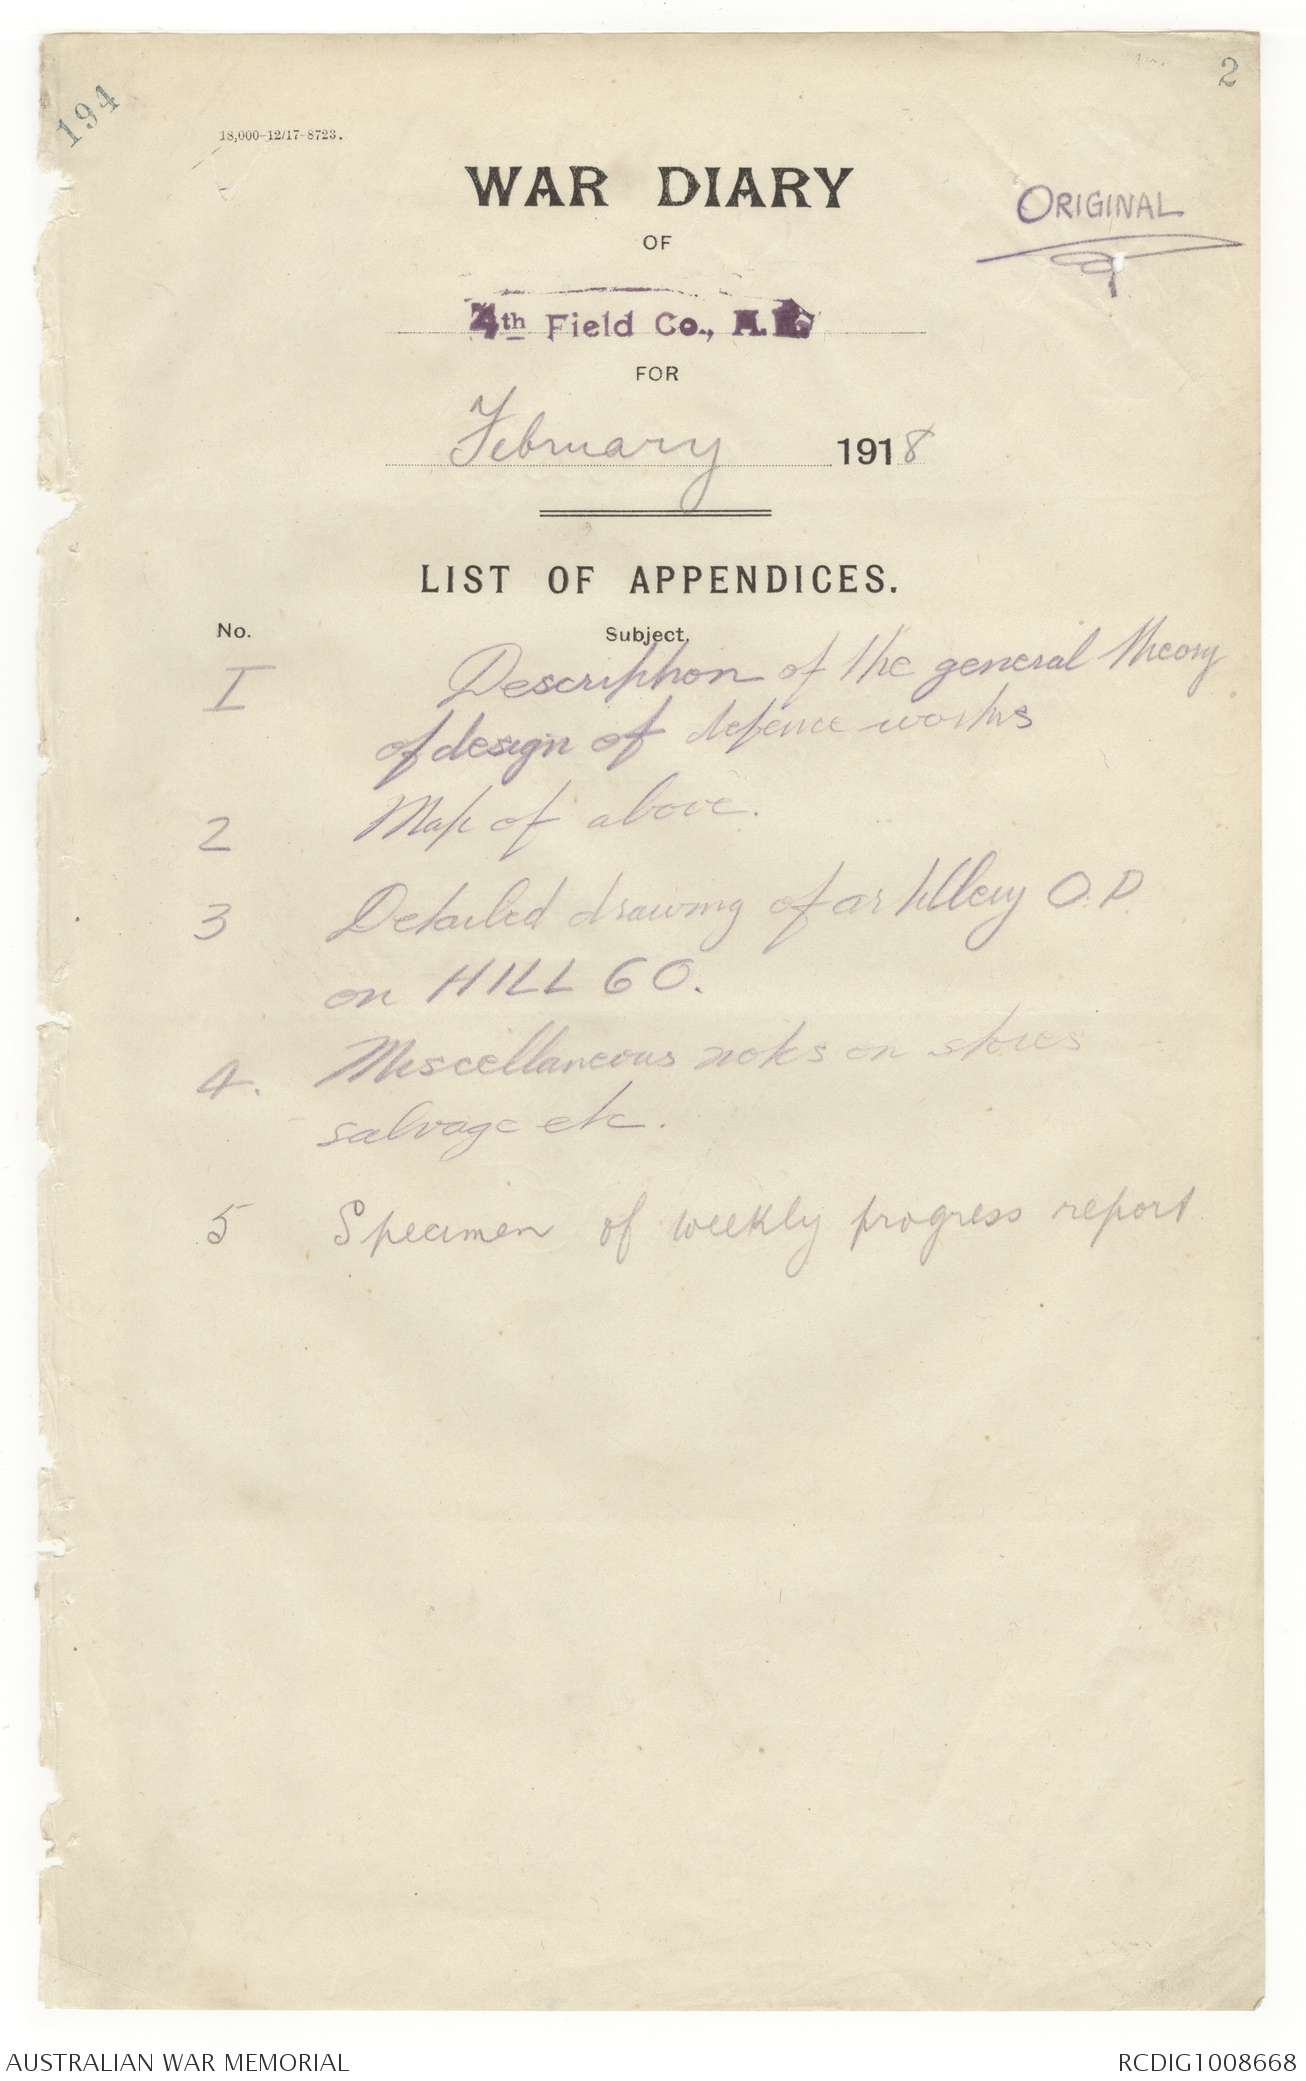 194
2
18,000-12/17-8723.
WAR DIARY
ORIGINAL
OF
4th Field Co., A.E.
FOR
February 1918
LIST OF APPENDICES.
No. Subject.
I Description of the general theory
of design of defence works
2 Map of above.
3 Detailed drawing of artillery O.P.
on HILL 60.
4. Miscellaneous notes on stores
salvage etc.
5 Specimen of weekly progress report
AUSTRALIAN WAR MEMORIAL
RCDIG1008668